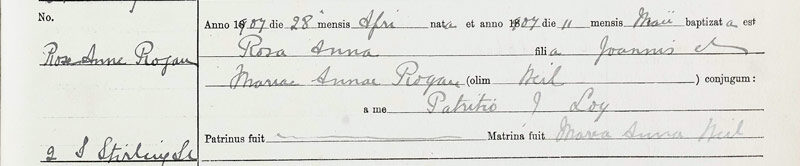 No.
Anno 1907 die 28ª mensis Apri nata et anno 1907 die 11 mensis Maii baptizata est
Rose Anne Rogan
Rosa Anna filia Joannis et
Mariae Annae Rogan (olim Neil) conjugum:
a me Patritio J Loy
Patrinus fuit Matrina fuit Maria Anna Neil
2 S Stirling St